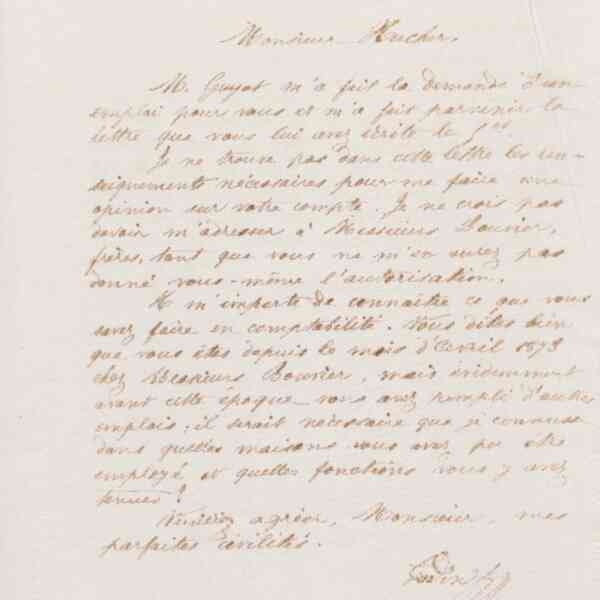 Monsieur Hucher,
M. Guyot m'a fait la demande d'un
emploi pour vous et m'a fait parvenir la
lettre que vous lui avez écrite le
Je ne trouve pas dans cette lettre les ren-
seignements nécessaires pour me faire une
opinion sur votre compte. Je ne crois pas
devoir m'adresser à Messieurs Bouvier,
frères, tant que vous ne m'en aurez pas
donné vous-même l'autorisation.
Il m'importe de connaître ce que vous
savez faire en comptabilité. Vous dites bien
que vous êtes depuis le mois d'Avril 1873
chez Messieurs Bouvier, mais évidemment
avant cette époque vous avez rempli d'autres
emplois; il serait nécessaire que je connusse
dans quelles maisons vous avez pu être
employé et quelles fonctions vous y avez
tenues?
Veuillez agréer, Monsieur, mes
parfaites civilités.
Godin